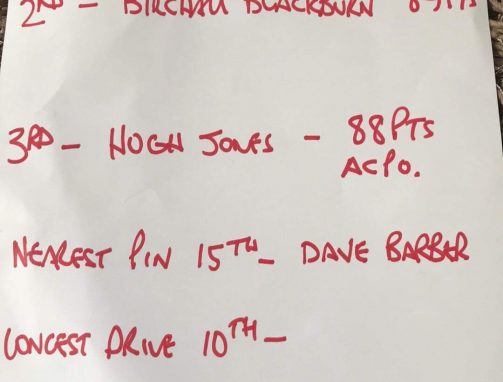 2ND - BLACKBURN
3RD - HUGH JONES - 88PTS
ACPO.
NEAREST PIN 15TH - DAVE BARBER
LONGEST DRIVE 10TH -